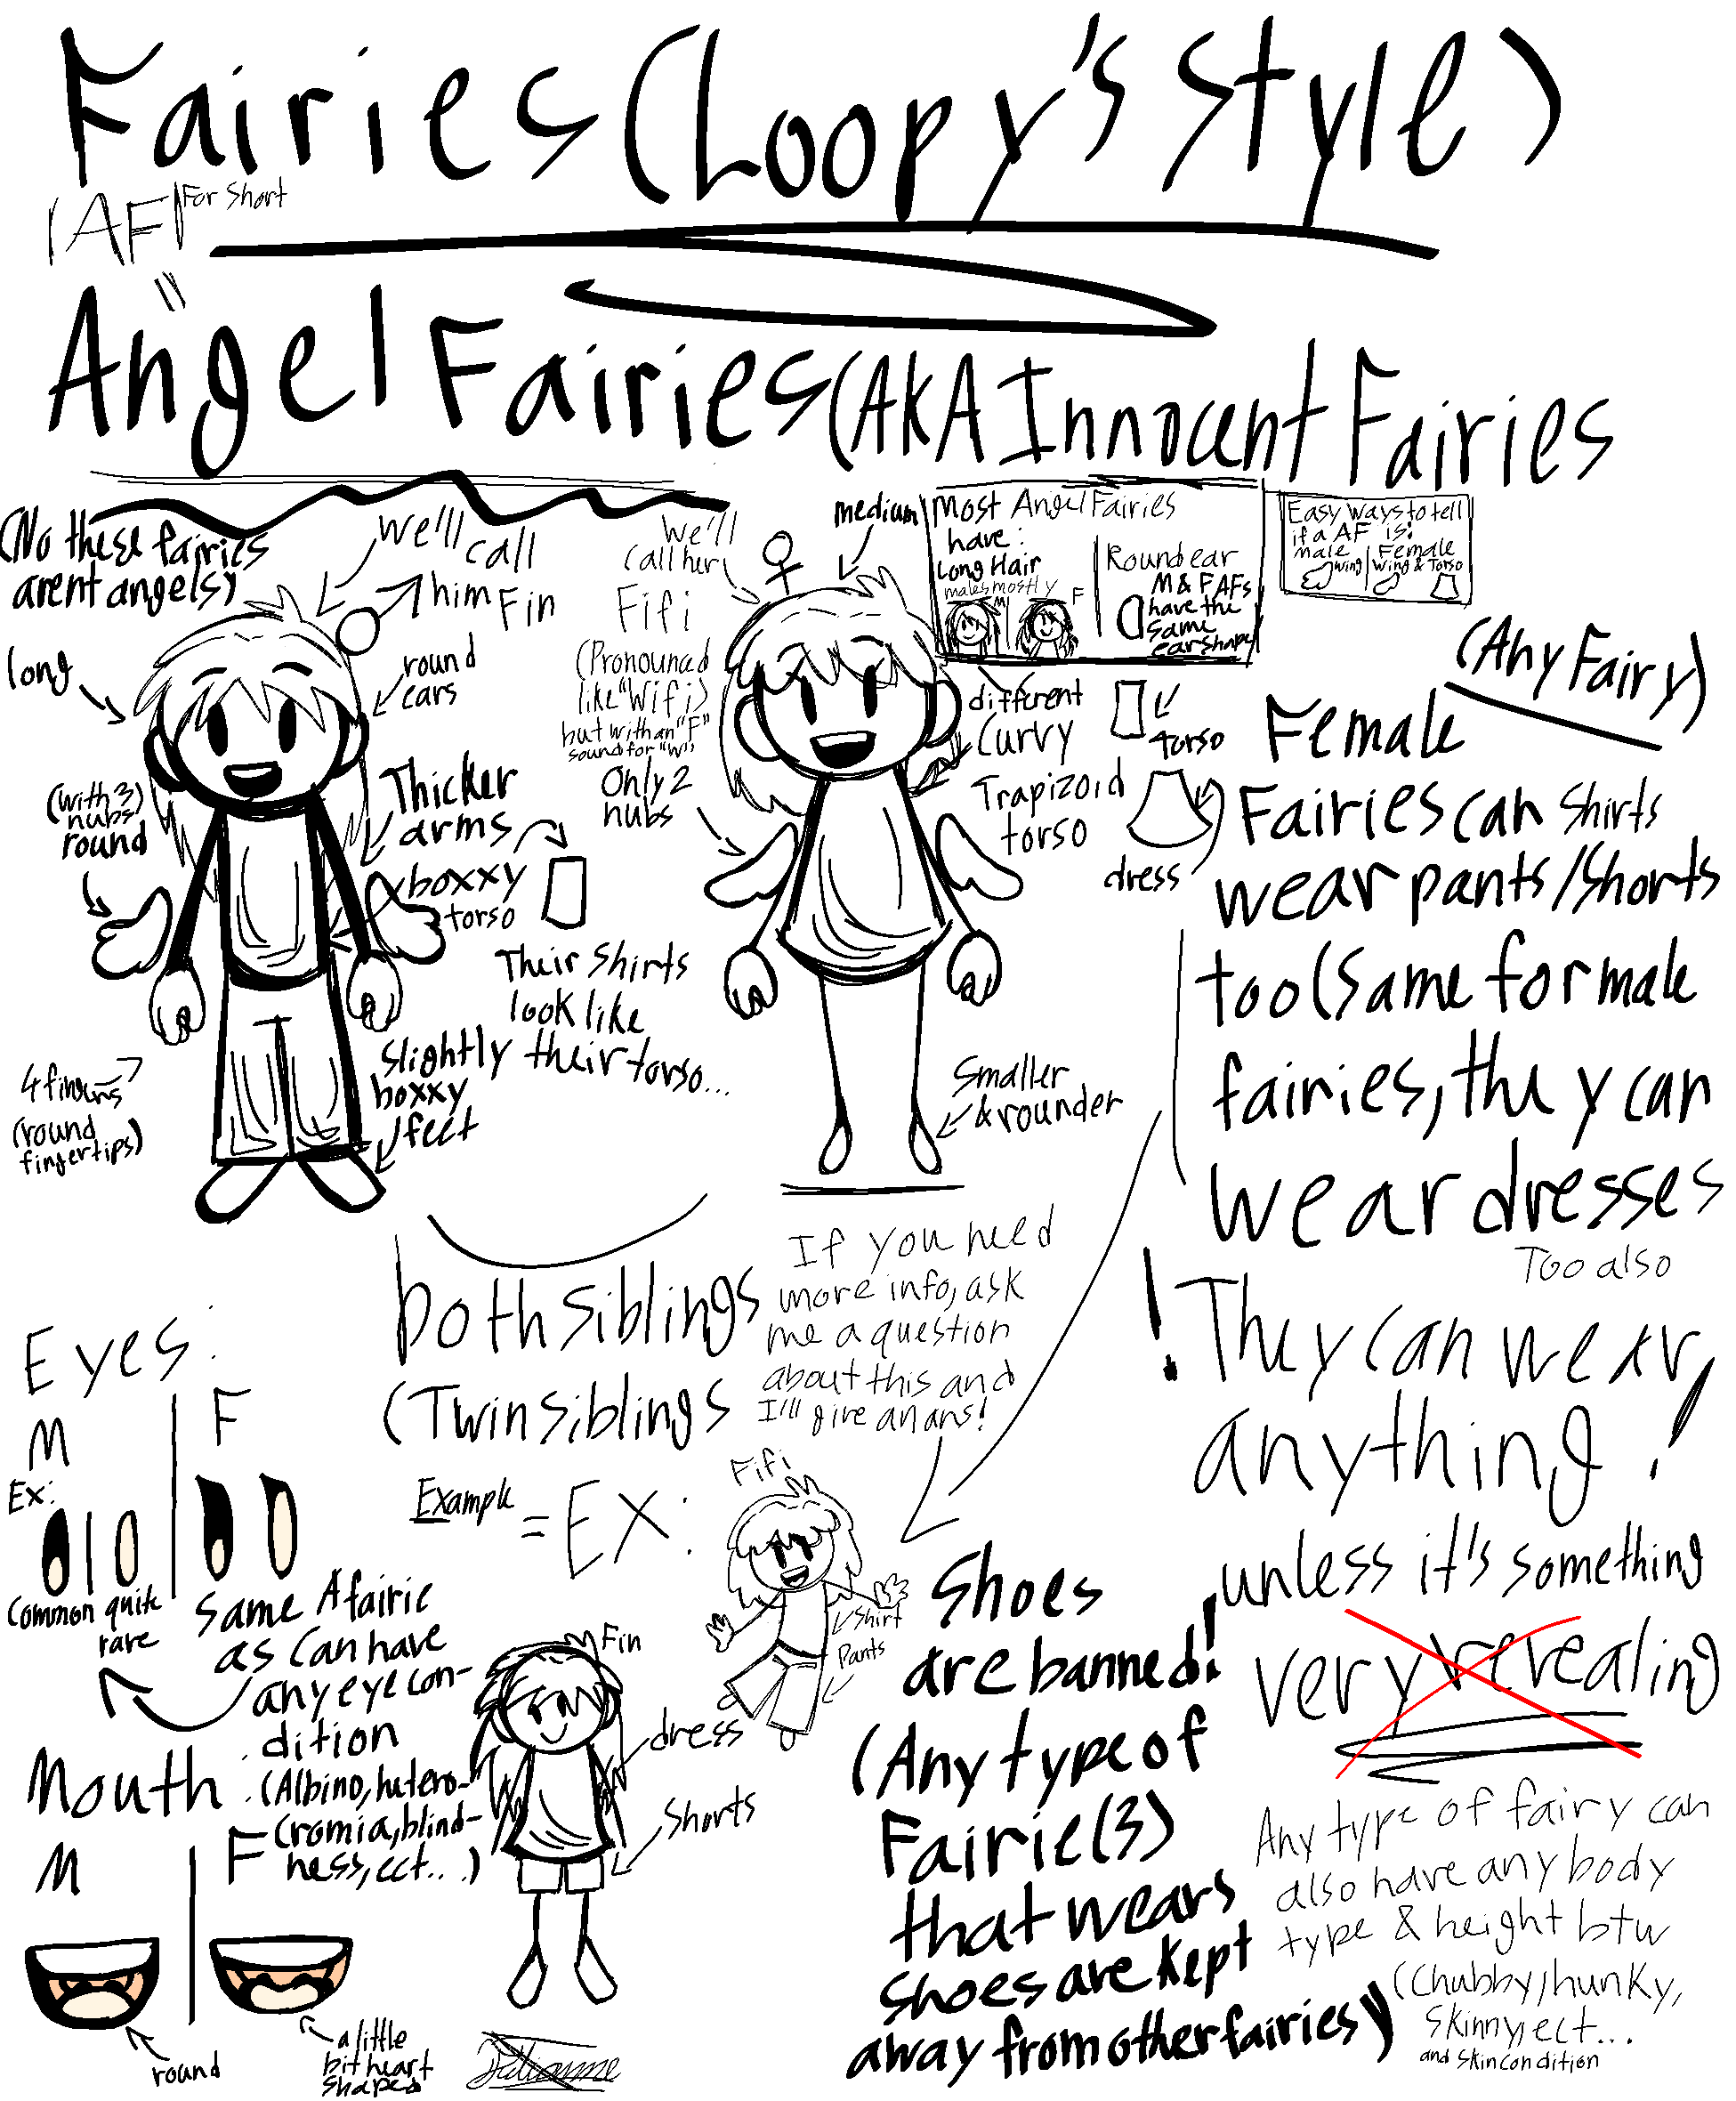 Fairies (Loopy's Style)
(AF) For Short
=
Angel Fairies (AKA Innocent Fairies
(No these fairies
arent angels)
We'll
call
him Fin
long
round
ears
(with 3)
nubs
round
Thicker
arms
boxxy
torso
Their shirts
look like
their torso...
4 fingers
(round
fingertips)
Slightly
boxxy
feet
We'll
call her
Fifi
(Pronounced
like "Wifi)
but with an "F"
sound for "W")
Only 2
nubs
medium
Most Angel Fairies
have:
Long Hair
males mostly
M
F
Round ear
M & F AFs
have the
same
ear shape
Easy ways to tell
if a AF is:
male
wing
Female
Wing & Torso
different
Curvy
Trapizoid
torso
torso
dress
Smaller
& rounder
(Any Fairy)
Female
Fairies can shirts
wear pants/shorts
too (Same for male
fairies, they can
wear dresses
Too also
! They can wear,
anything!
unless it's something
very revealing
Any type of fairy can
also have any body
type & height btw
(Chubby, hunky,
skinny, ect...
and skin condition
both siblings
(Twin siblings
If you need
more info, ask
me a question
about this and
I'll give an ans!
Example = EX:
Fifi
Shirt
Pants
Fin
dress
Shorts
Shoes
are banned!
(Any type of
Fairie(3)
that wears
shoes are kept
away from other fairies)
Eyes:
M
F
Ex:
Common
quite
rare
Same
as
A fairie
Can have
any eye con-
dition
(Albino, hetero-
cromia, blind-
ness, ect...)
Mouth:
M
F
round
a little
bit heart
shaped